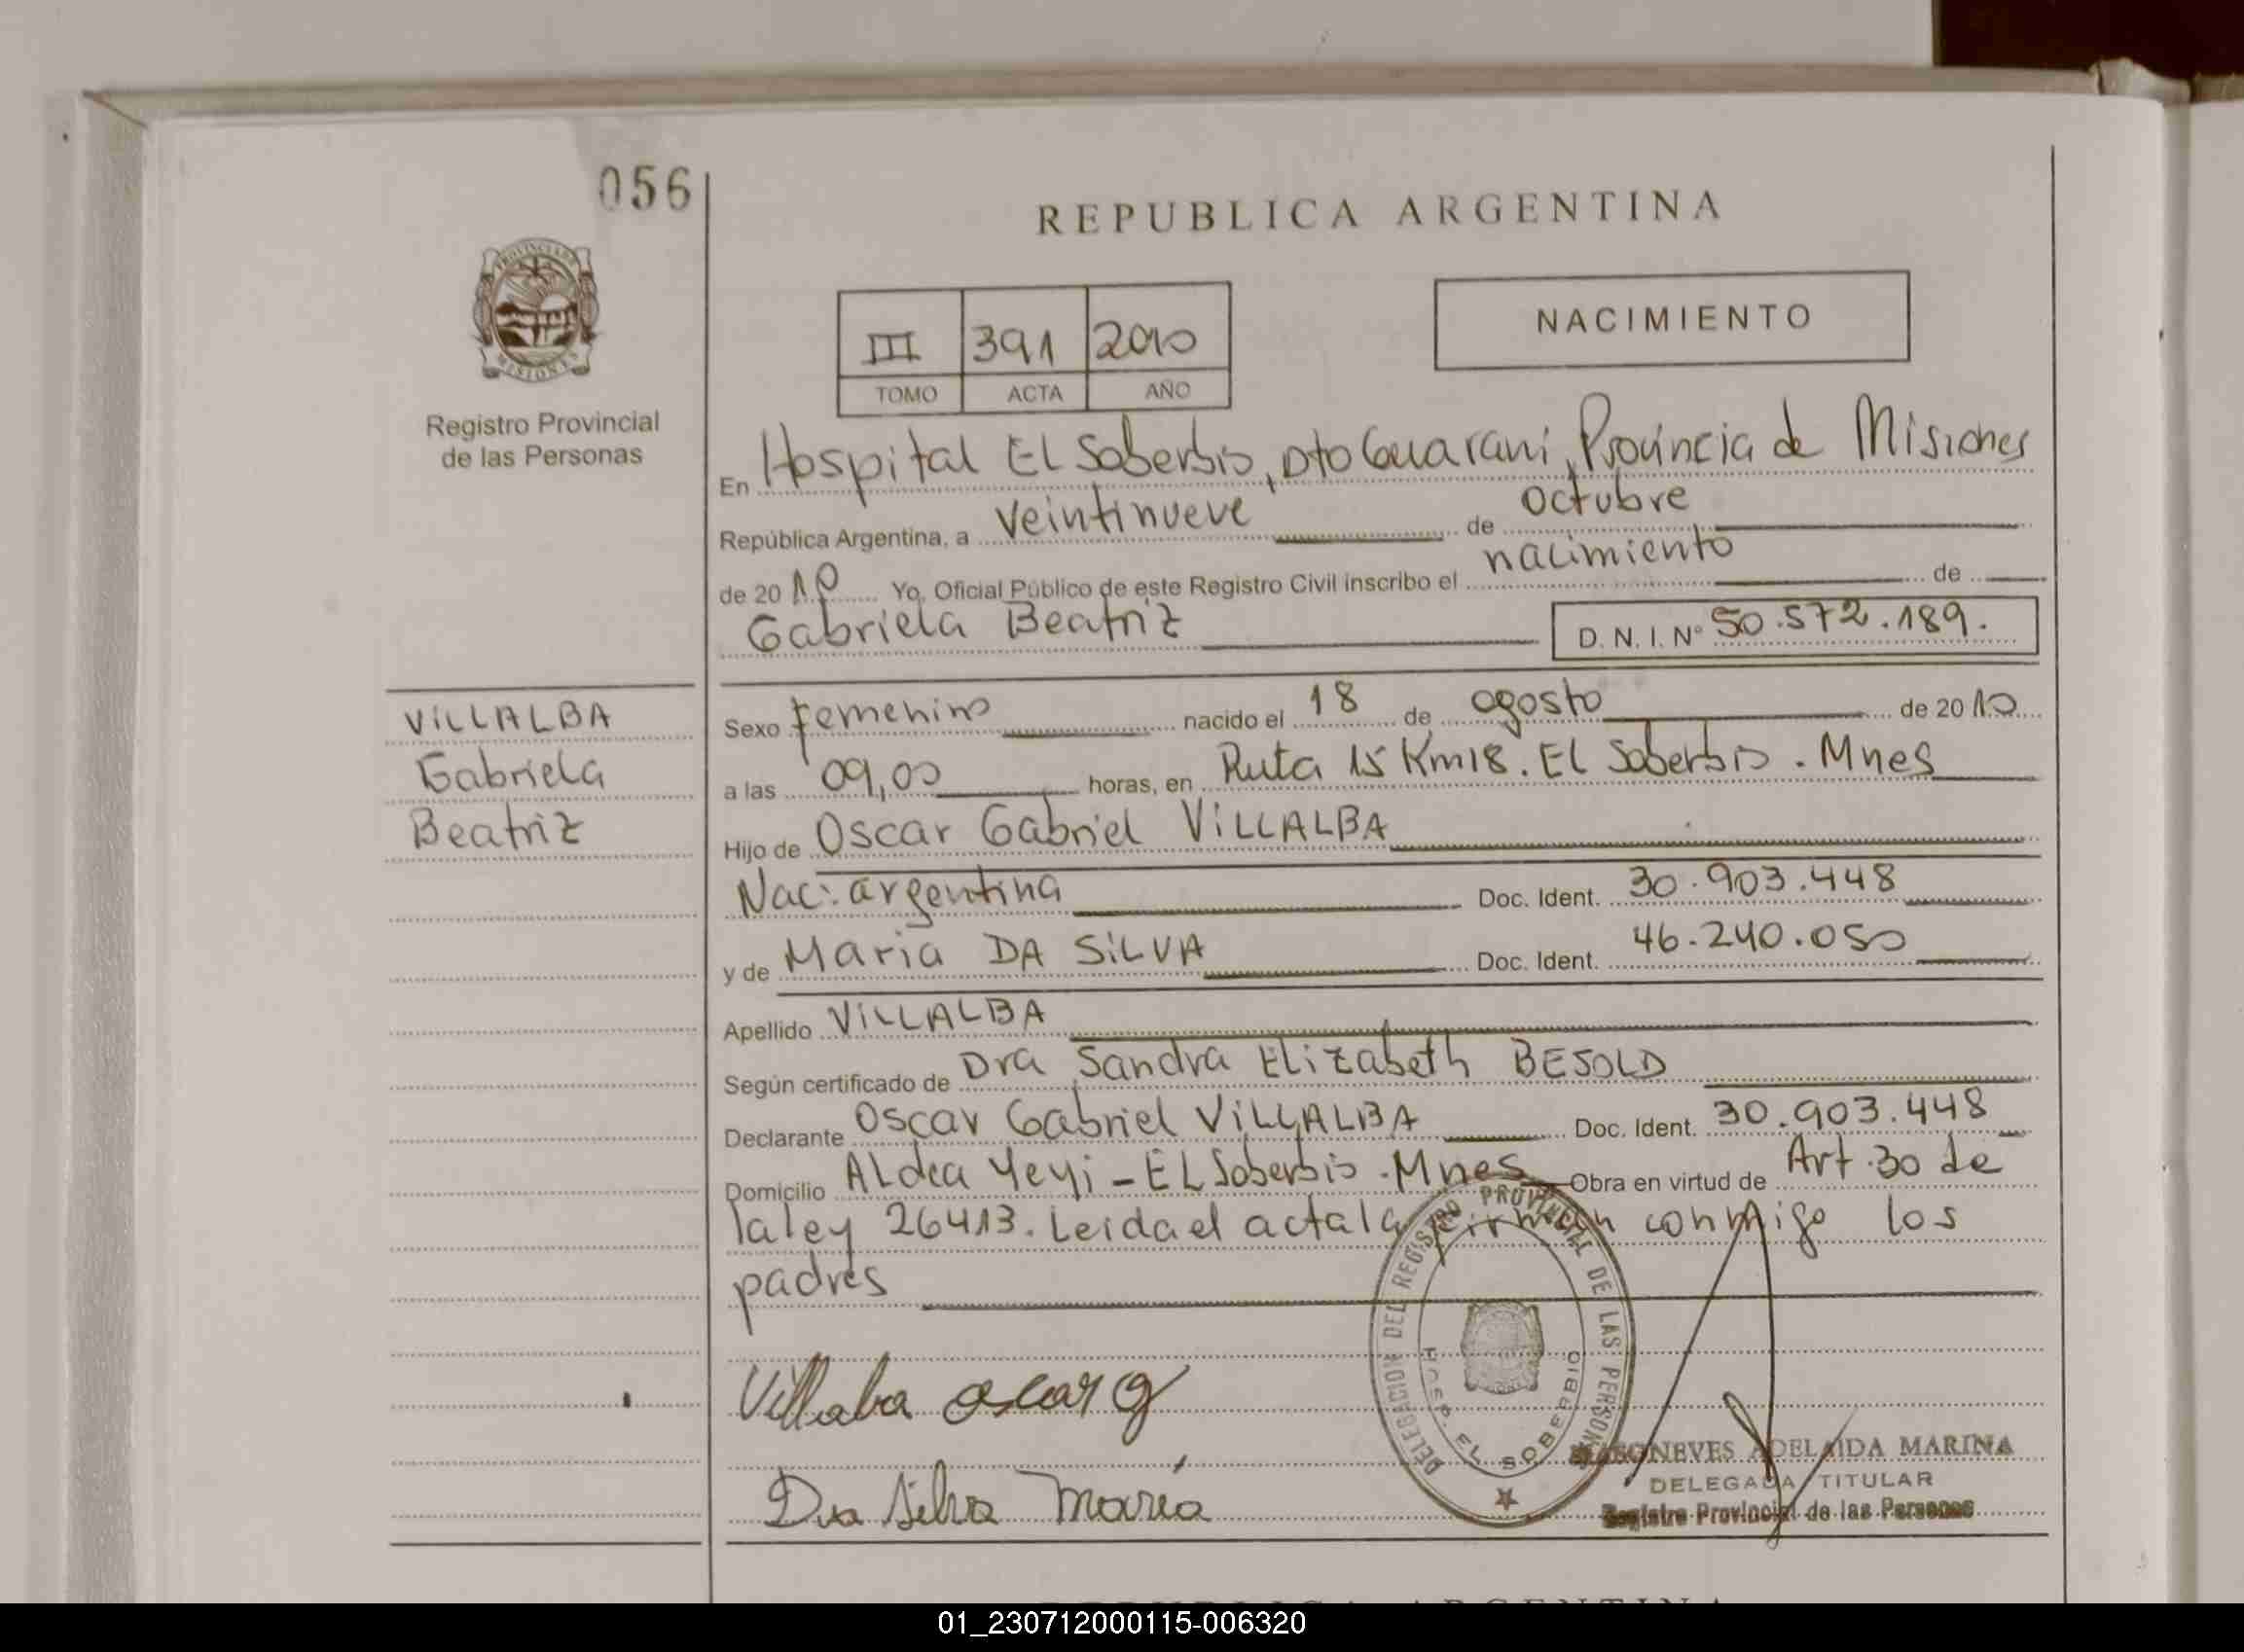 056
REPUBLICA ARGENTINA
PROVINCIA DE MISIONES
Registro Provincial
de las Personas
III 391 2010
TOMO ACTA AÑO
NACIMIENTO
En Hospital El Soberbio, Dto Guaraní, Provincia de Misiones
República Argentina, a veintinueve de octubre
de 2010 Yo, Oficial Público de este Registro Civil inscribo el nacimiento de
Gabriela Beatriz D. N. I. Nº 50.572.189.
VILLALBA
Gabriela
Beatriz
Sexo Femenino nacido el 18 de agosto de 2010
a las 09,00 horas, en Ruta 15 Km18. El Soberbio . Mnes
Hijo de Oscar Gabriel VILLALBA
Nac: argentina Doc. Ident. 30.903.448
y de Maria DA SILVA Doc. Ident. 46.240.050
Apellido VILLALBA
Según certificado de Dra Sandra Elizabeth BESOLD
Declarante Oscar Gabriel VILLALBA Doc. Ident. 30.903.448
Domicilio Aldea Yeyi - El Soberbio . Mnes Obra en virtud de Art. 30 de
la ley 26413. Leida el acta la firman conmigo los
padres
Villalba Oscar G
Da Silva María
DELEGACION DEL REGISTRO PROVINCIAL DE LAS PERSONAS
HOSP. EL SOBERBIO
NEVES ADELAIDA MARINA
DELEGADA TITULAR
Registro Provincial de las Personas
REPUBLICA ARGENTINA
01_230712000115-006320